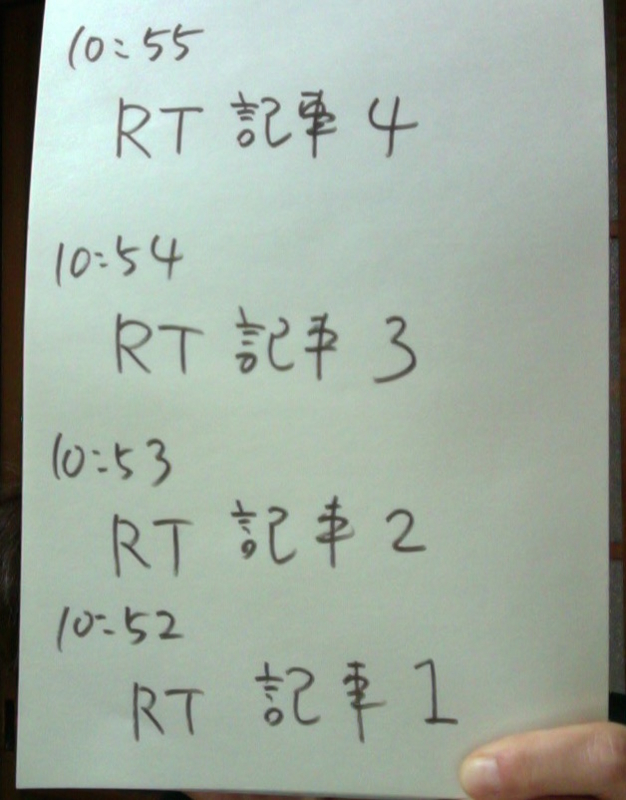 10:55
RT 記事 4
10:54
RT 記事 3
10:53
RT 記事 2
10:52
RT 記事 1